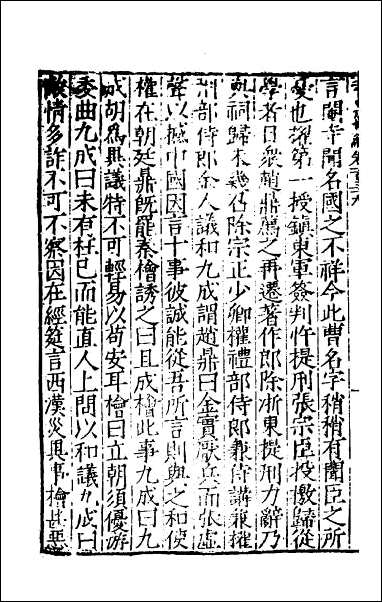 言閹寺聞名國之不祥今此曹名字稍稍有聞臣之所
憂也擢第一授鎮東軍簽判忤提刑張宗臣投檄歸從
學者日衆趙鼎薦之再遷著作郎除浙東提刑力辭乃
與祠歸未幾召除宗正少卿權禮部侍郎兼侍講兼權
刑部侍郎金人議和九成謂趙鼎曰金實厭兵而張虚
聲以撼中國因言十事彼誠能從吾所言則與之和使
權在朝廷鼎旣罷秦檜誘之曰且成檜此事九成曰九
成胡爲異議特不可輕易以苟安耳檜曰立朝須優游
委曲九成曰未有枉己而能直人上問以和議九成曰
敵情多詐不可不察因在經筵言西漢災異事檜甚惡